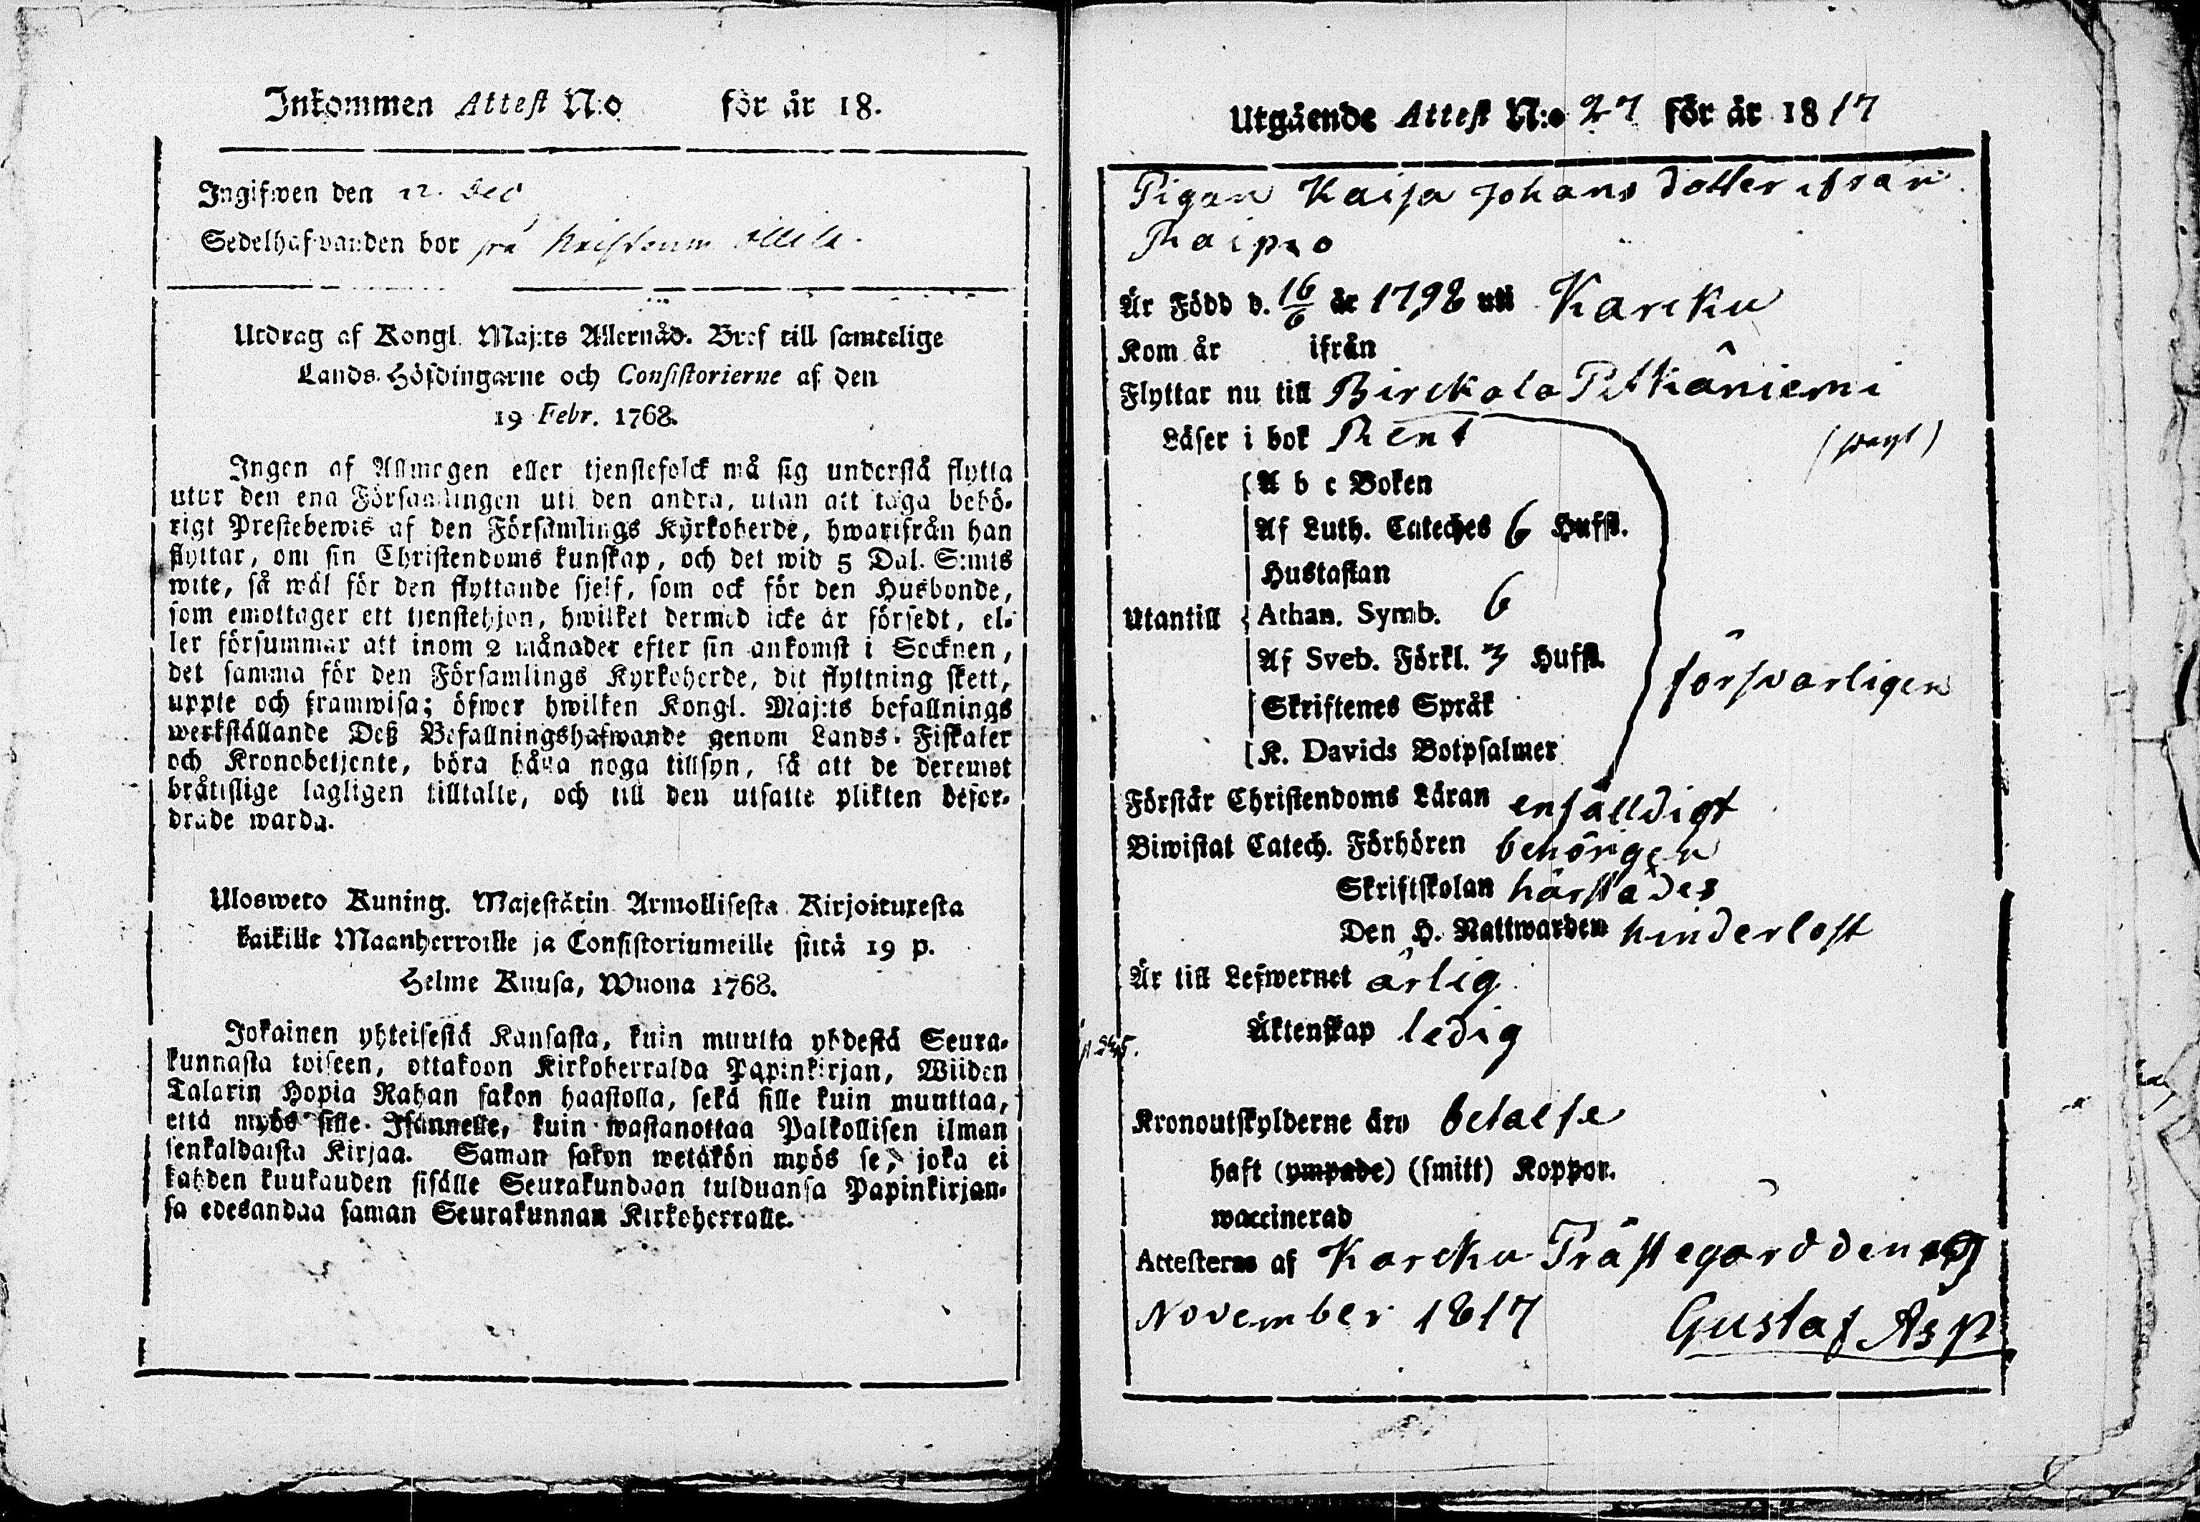 Inkommen Attest N:o för år 18.
Ingifwen den 12. Dec
Sedelhafwanden bor på
Utdrag af Kongl. Maj:ts Allernåd. Bref till samtelige
Lands-Höfdingarne och Consistorierne af den
19 Febr. 1768.
Ingen af Allmogen eller tjenstefolck må sig understå flytta
utur den ena Församlingen uti den andra, utan att taga behö-
rigt Prestebewis af den Församlings Kyrkoherde, hwarifrån han
flyttar, om sin Christendoms kunskap, och det wid 5 Dal. S:mts
wite, så wäl för den flyttande sjelf, som ock för den Husbonde,
som emottager ett tjenstehjon, hwilket dermed icke är försedt, el-
ler försummar att inom 2 månader efter sin ankomst i Socknen,
det samma för den Församlings Kyrkoherde, dit flyttning skett,
uppte och framwisa; öfwer hwilken Kongl. Maj:ts befallnings
werkställande Deß Befallningshafwande genom Lands-Fiskaler
och Kronobetjente, böra hafwa noga tillsyn, så att de deremot
bråtislige lagligen tilltalte, och till den utsatte plikten befor-
drade warda.
Ulosweto Kuning. Majestätin Armollisesta Kirjoituxesta
kaikille Maanherroille ja Consistoriumeille siitä 19 p.
Helme Kuusa, Wuona 1768.
Jokainen yhteisestä Kansasta, kuin muutta yhdestä Seura-
kunnasta toiseen, ottakoon Kirkoherralda Papinkirjan, Wiiden
Talarin Hopia Rahan sakon haastolla, sekä sille kuin muuttaa,
että myös sille Isännelle, kuin wastanottaa Palkollisen ilman
senkaldaista Kirjaa. Saman sakon wetäkön myös se, joka ei
kahden kuukauden sisälle Seurakundaan tulduansa Papinkirjan-
sa edesandaa saman Seurakunnan Kirkoherralle.
Utgående Attest N:o 27 för år 1817
Pigan Kaisa Johans dotter ifrån
Raipio
Är Född d. 16/6 år 1798 uti Karcku
Kom år ifrån
Flyttar nu till Birckala Pitkäniemi
Läser i bok Rent
A b c Boken
Af Luth. Cateches 6 Hufst.
Hustaflan
Utantill Athan. Symb. 6
Af Sveb. Förkl. 3 Hufst.
försvarligen
Skriftenes Språk
K. Davids Botpsalmer
Förstår Christendoms Läran enfälldigt
Biwistat Catech. Förhören behörigen
Skriftskolan härstädes
Den H. Nattwarden hinderlöst
Är till Lefwernet ärlig
Äktenskap ledig
Kronoutskylderne äro betalte
haft (ympade) (smitt) Koppor.
waccinerad
Attesteras af Karcku Prästegård den 19
November 1817 Gustaf Asp